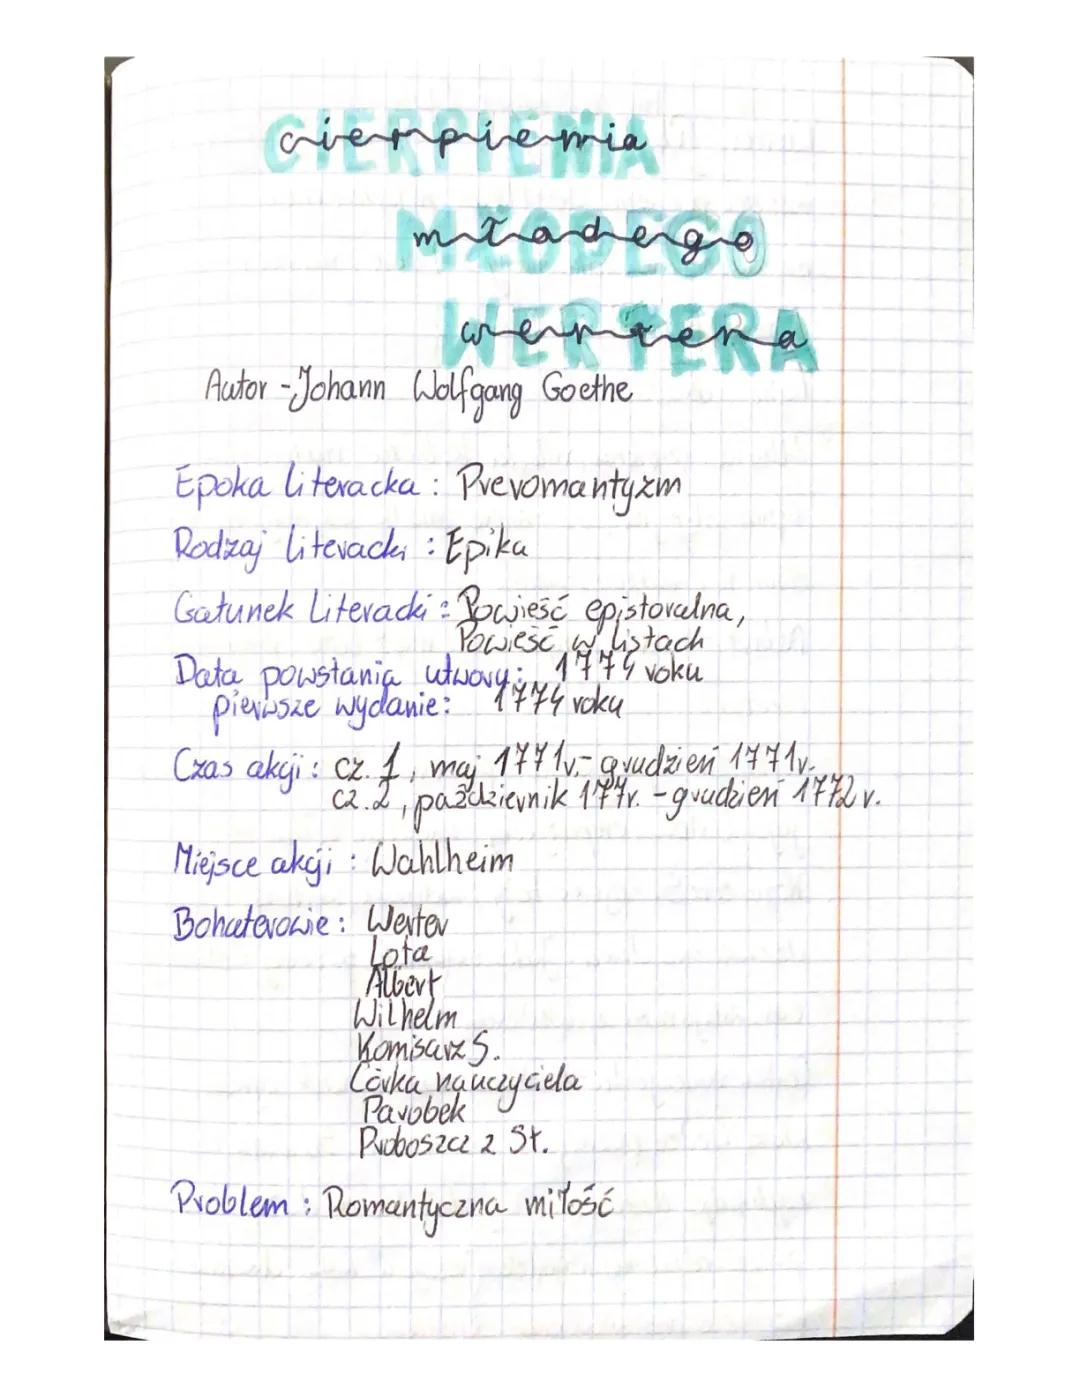 CIERPIENIA
MŁODEGO
WERTERA
Autor - Johann Wolfgang Goethe
Epoka literacka: Preromantyzm
Rodzaj literacki: Epika
Gatunek Literacki: Powieść epistoralna,
Powieść w listach
Data powstania utworu: 1774 roku
pierwsze wydanie: 1774 roku
Czas akcji: cz. 1, maj 1771r.- grudzień 1771r.
cz. 2, październik 177r. - grudzień 1772 r.
Miejsce akcji: Wahlheim
Bohaterowie: Werter
Lota
Albert
Wilhelm
Komisarz S.
Córka nauczyciela
Parobek
Proboszcz z St.
Problem: Romantyczna miłość